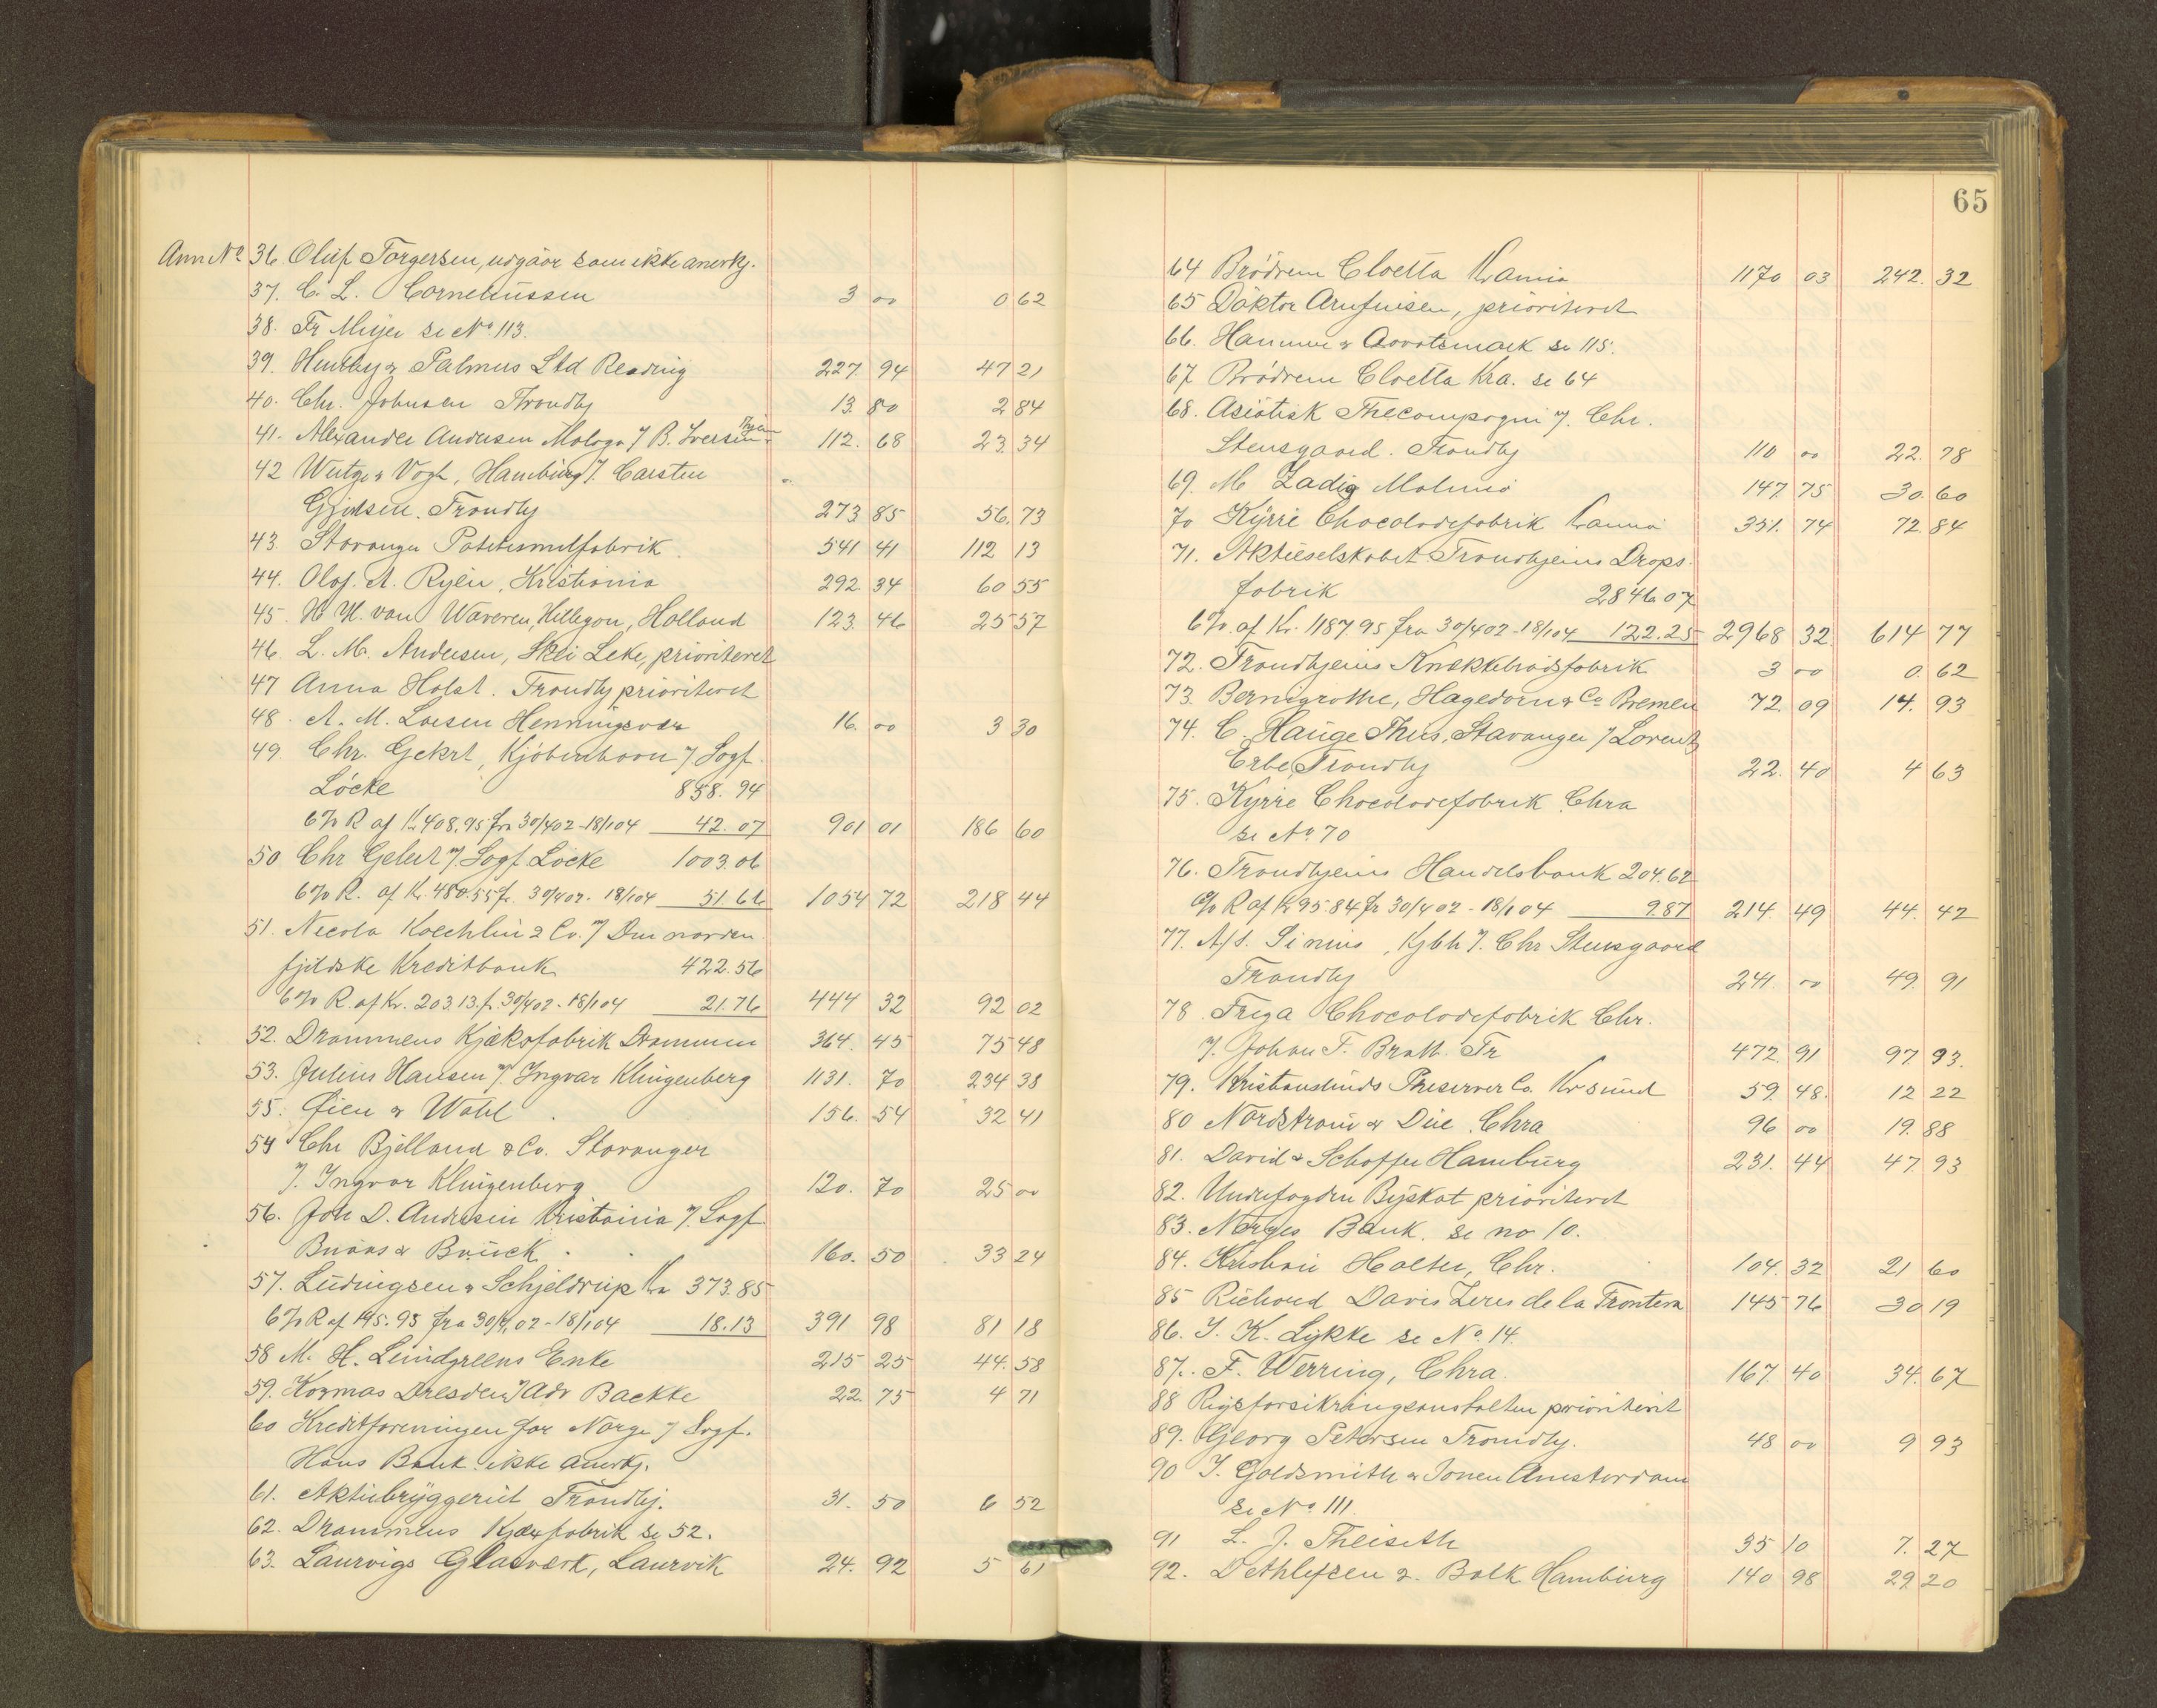 Ann No 36. Oluf Torgersen, udgåår som ikke anerkj.
37. C. L. Corneliüssen 3 00 0 62
38. Fr Meyer se No 113.
39. Huntley & Palmers Ltd Reading 227. 94 47 21
40. Chr. Johnsen Trondhj 13. 80 2 84
41. Alexander Andersen Malaga v/ B. Iversen Thjem 112. 68 23. 34
42 Weitge & Vogt, Hamburg v/. Carsten
Gjidsen. Trondhj 273 85 56. 73
43. Stavanger Potetesmelfabrik 541 41 112 13
44. Olaf. A. Ryen, Kristiania 292. 34 60 55
45. H. M. van Waveren, Hillegon, Holland 123. 46 25 57
46. L. M. Andersen, Skei Leke, prioriteret
47 Anna Holst. Trondhj prioriteret
48. A. M. Larsen Henningsvær 16. 00 3 30
49. Chr. Gekrt, Kjöbenhavn v/ Sagf.
Löcke 858. 94
6% R af Kr 408.95 fra 30/4 02 - 18/1 04 42. 07 901 01 186 60
50 Chr Gelert v/ Sagf. Löcke 1003. 06
6% R. af Kr. 480.55 fr. 30/4 02. 18/1 04 51. 66 1054 72 218 44
51. Necola Koechlin & Co. v/ Den norden-
fjeldske Kreditbank 422. 56
6% R. af Kr. 203 13. fr. 30/4 02 - 18/1 04 21. 76 444 32 92 02
52. Drammens Kjæksfabrik Drammen 364. 45 75 48
53. Julius Hansen v/. Ingvar Klingenberg 1131. 70 234 38
55. Øien & Wahl 156. 54 32 41
54 Chr Bjelland & Co. Stavanger
v/. Ingvar Klingenberg 120. 70 25 00
56. Joh D. Andersen Kristiania v/. Sagf.
Buaas & Brück 160. 50 33 24
57. Lüdvigsen & Schjeldrup Kra 373. 85
6% R af 195. 95 fra 30/4 02 - 18/1 04 18. 13 391 98 81 18
58 M. H. Lundgreens Enke 215 25 44. 58
59. Kosmos Dresden v/ Adv Baekke 22. 75 4 71
60 Kreditforeningen for Norge v/ Sagf.
Hans Bauk. ikke anerkj.
61. Aktiebryggeriet Trondhj. 31. 50 6 52
62. Drammens Kjæxfabrik se 52.
63. Laurvigs Glasverk, Laurvik 24. 92 5 61
65
64 Brödrene Cloetta Krania 1170 03 242. 32
65 Doktor Arnfinsen, prioriteret
66. Hammer & Aavatsmark se 115.
67 Brödrene Cloetta Kra. se 64
68. Asiatisk Thecompagni v/. Chr.
Stensgaard. Trondhj 110 00 22. 78
69. M. Zadig Malmö 147. 75 30. 60
70 Kyrre Chocoladefabrik Krania 351. 74 72. 84
71. Aktieselskabet Trondhjems Drops-
fabrik 2846 07
6% af Kr. 1187. 95 fra 30/4 02 - 18/1 04 122. 25 2968 32 614 77
72. Trondhjems Knækkebrödsfabrik 3 00 0. 62
73. Bernigrothe, Hagedorn & Co Bremen 72 09 14. 93
74. C. Hauge Thiis, Stavanger v/ Lorentz
Erbe, Trondhj 22. 40 4 63
75. Kyrre Chocoladefabrik Chra
se No 70
76. Trondhjems Handelsbank 204. 62
6% R af Kr 95. 84 fr 30/4 02 - 18/1 04 9. 87 214. 49 44. 42
77. A/s. Simius, Kjbh v/. Chr Stensgaard
Trondhj 241. 00 49. 91
78. Freya Chocoladefabrik Chr.
v/. Johan F. Bratt. Tr 472. 91 97 93.
79. Kristiansünds Preserver Co. Krsünd 59. 48. 12 22
80 Nordstrøm & Due. Chra 96 00 19. 88
81. David & Schaffer Hamburg 231. 44 47. 93
82. Underfogden Byskat prioriteret
83. Norges Bank. se no 10.
84. Kristian Holter, Chr. 104. 32 21 60
85 Richard Davis Zeres de la Frontera 145 76 30 19
86. I. K. Lykke se No. 14
87. F. Werring, Chra. 167. 40 34. 67
88 Rigsforsikringsanstalten prioriterit
89. Georg Petersen Trondhj. 48 00 9 93
90 I. Goldsmith & Zonen Amsterdam
se No 111
91 L. J. Theiseth 35 10 7. 27
92. Dethlefsen & Balk Hamburg 140 98 29. 20